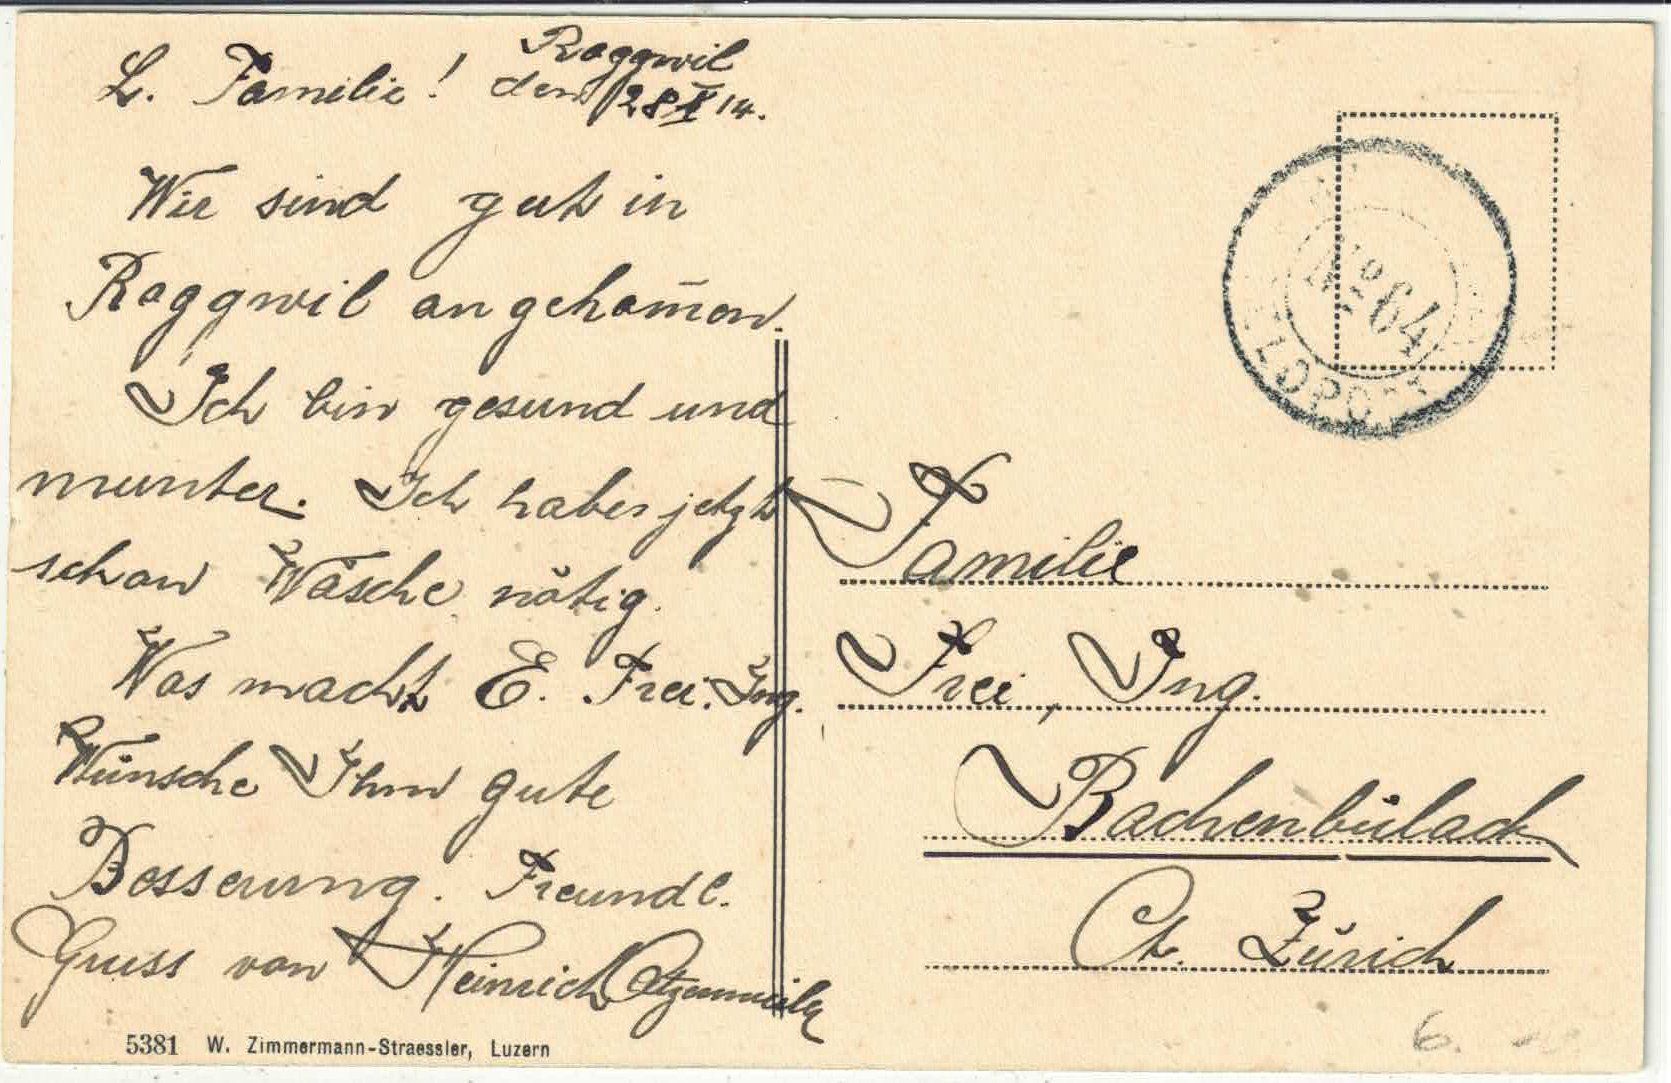 Roggwil
L. Familie! den 28 X 14.
Wir sind gut in
Roggwil angekom̄en.
Ich bin gesund und
munter. Ich haben jetzt
schon Wäsche nötig.
Was macht E. Frei. Ing.
Wünsche Ihm gute
Besserung. Freundl.
Gruss von Heinrich
5381 W. Zimmermann-Straessler, Luzern
No 64
Familie
Frei, Ing.
Bachenbülach
Ct. Zürich
6.